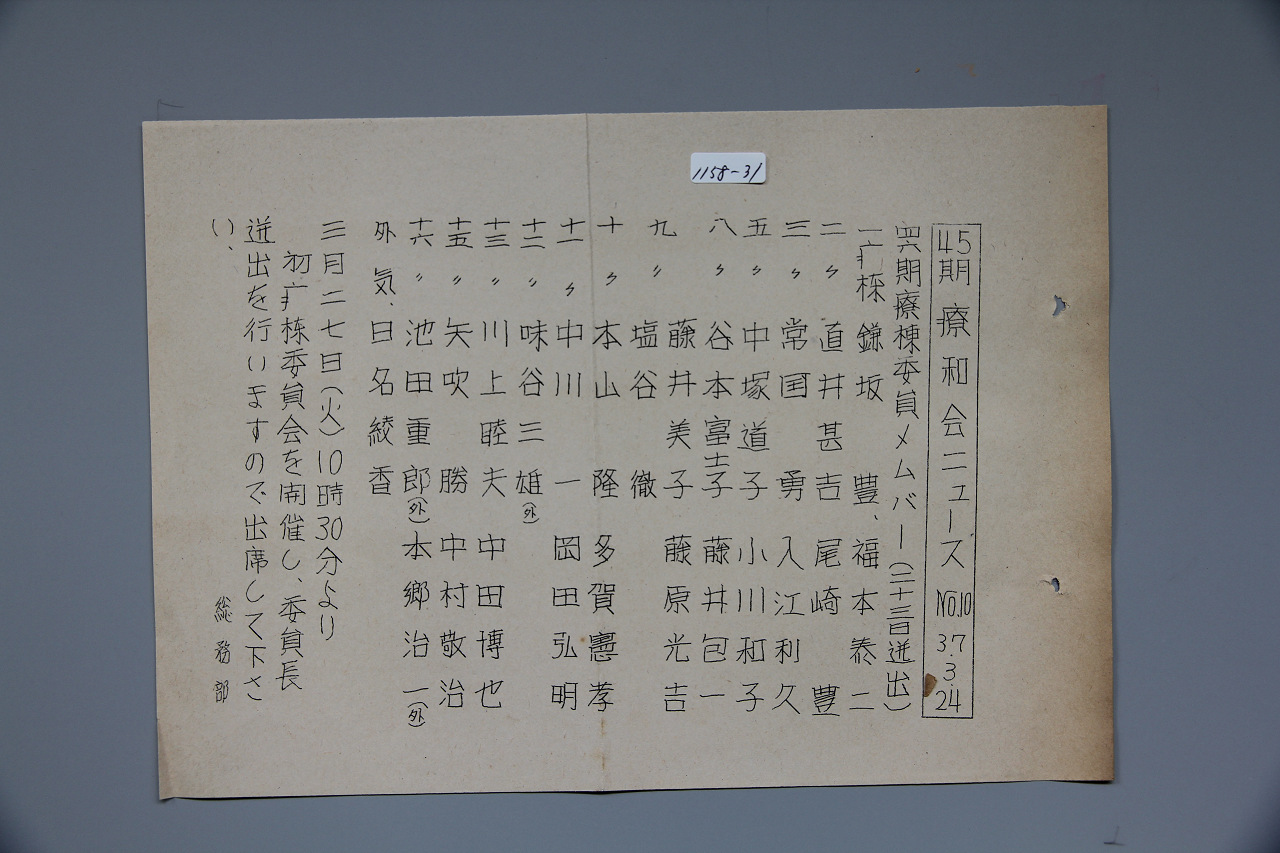 1158-31
45期 療和会ニュース No.10 37.3.24
四六期療棟委員メムバー(二十三日迸出)
一疒棟 鎌坂 豊、福本泰二
二〃 道井甚吉 尾崎 豊
三〃 常国 勇 入江利久
五〃 中塚道子 小川和子
八〃 谷本富士子 藤井包一
藤井美子 藤原光吉
九〃 塩谷 徹
十〃 本山 隆 多賀憲孝
十一〃 中川 一 岡田弘明
十二〃 味谷三雄(外)
十三〃 川上睦夫 中田博也
十五〃 矢吹 勝 中村敬治
十六〃 池田重郎(外) 本郷治一(外)
外気、日名綾香
三月二七日(火)10時30分より
初疒棟委員会を開催し、委員長
迸出を行いますので出席して下さ
い、
総務部